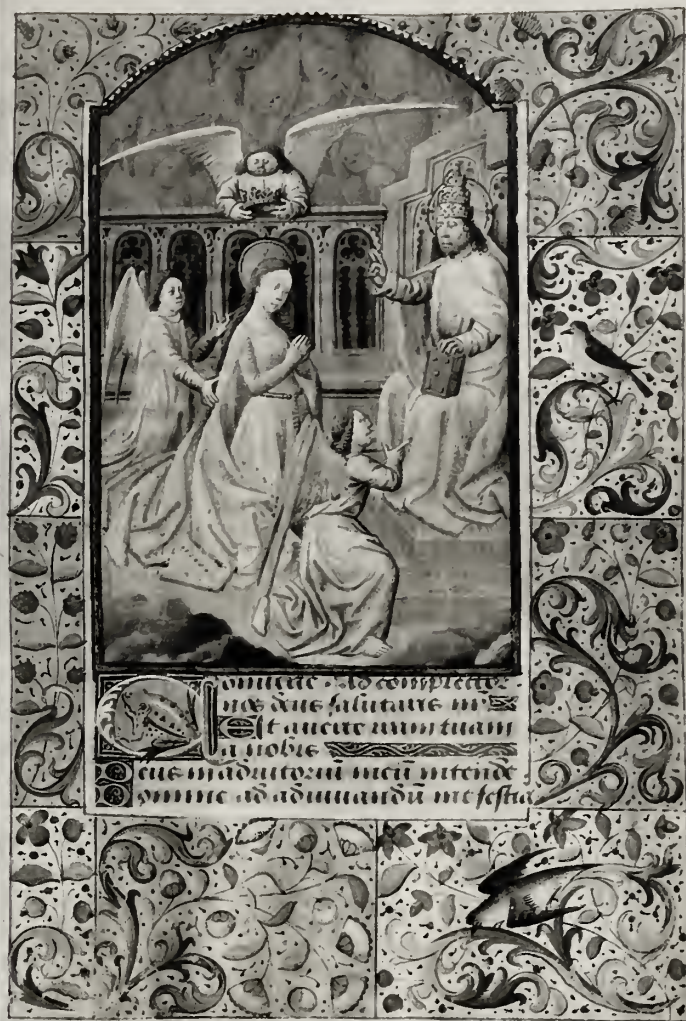 Conuerte . Ad completo
nos deus salutaris nr̄
Et auerte iram tuam
a nobis
Deus in adiutoriū meū intende
Domine ad adiuuandū me festia